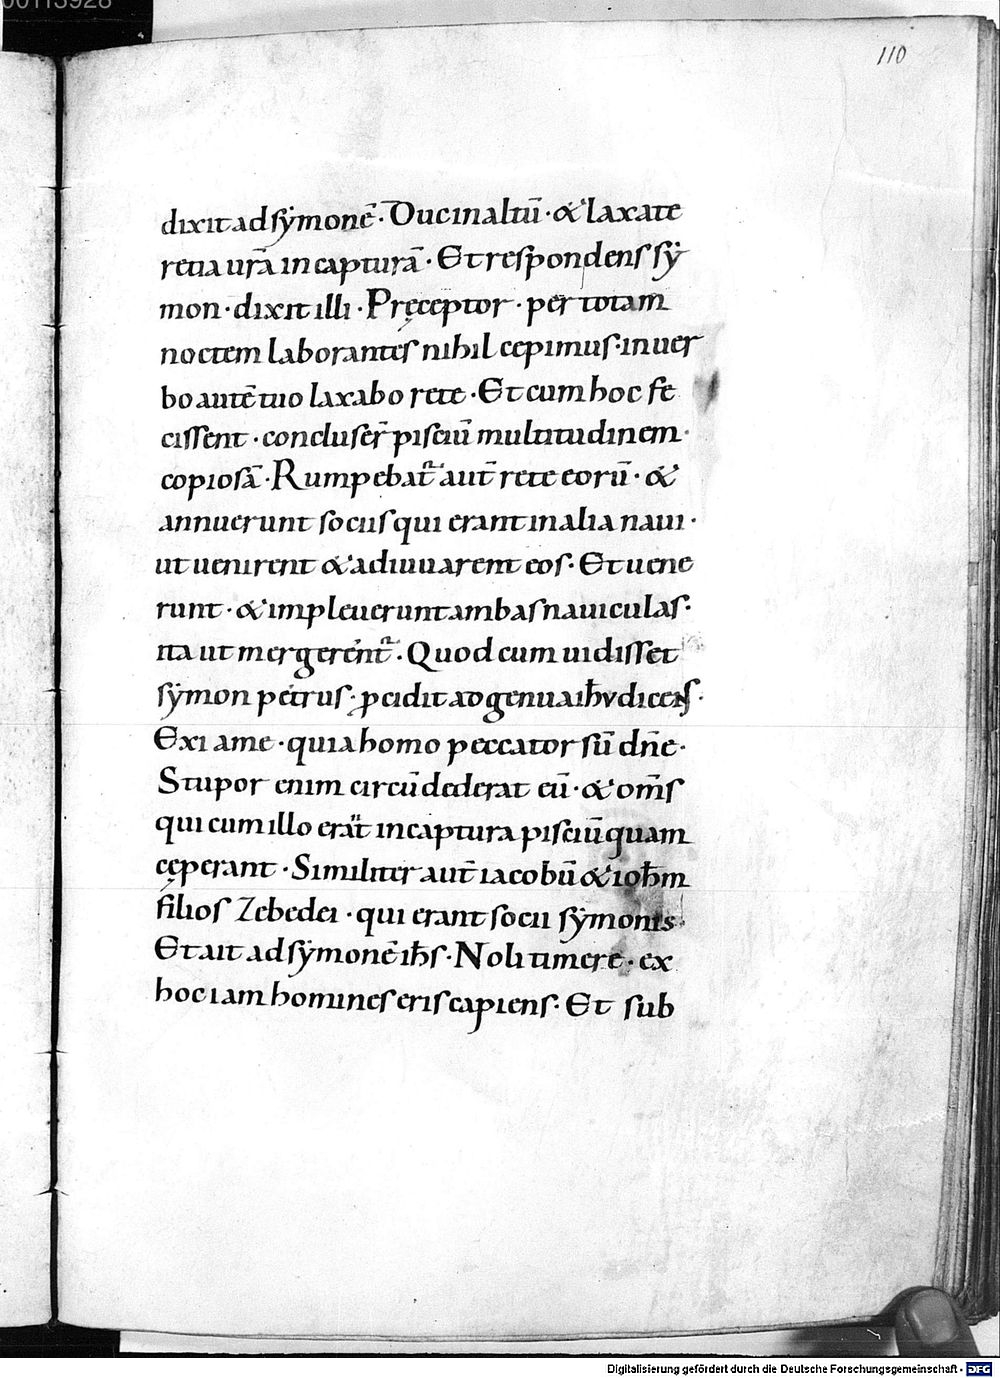 00113928
110
dixit ad sẏmonē · Duc in altū · & laxate
retia urā in capturā · Et respondens sẏ
mon · dixit illi · Pręceptor · per totam
noctem laborantes nihil cepimus · in uer
bo autē tuo laxabo rete · Et cum hoc fe
cissent · concluser̄ pisciū multitudinem ·
copiosā · Rumpebat᷑ aut̄ rete eorū · &
annuerunt sociis qui erant in alia naui ·
ut uenirent & adiuuarent eos · Et uene
runt · & impleuerunt ambas nauiculas ·
ita ut mergerent᷑ · Quod cum uidisset
sẏmon petrus · ꝓcidit ad genua ihv̄ dicens ·
Exi a me · quia homo peccator sū dn̄e ·
Stupor enim circūdederat eū · & om̄s
qui cum illo erant in captura pisciū quam
cęperant · Similiter aut̄ iacobū & ioh̄m
filios Zebedei · qui erant socii sẏmonis ·
Et ait ad sẏmonē ih̄s · Noli timere · ex
hoc iam homines eris capiens · Et sub
Digitalisierung gefördert durch die Deutsche Forschungsgemeinschaft - DFG